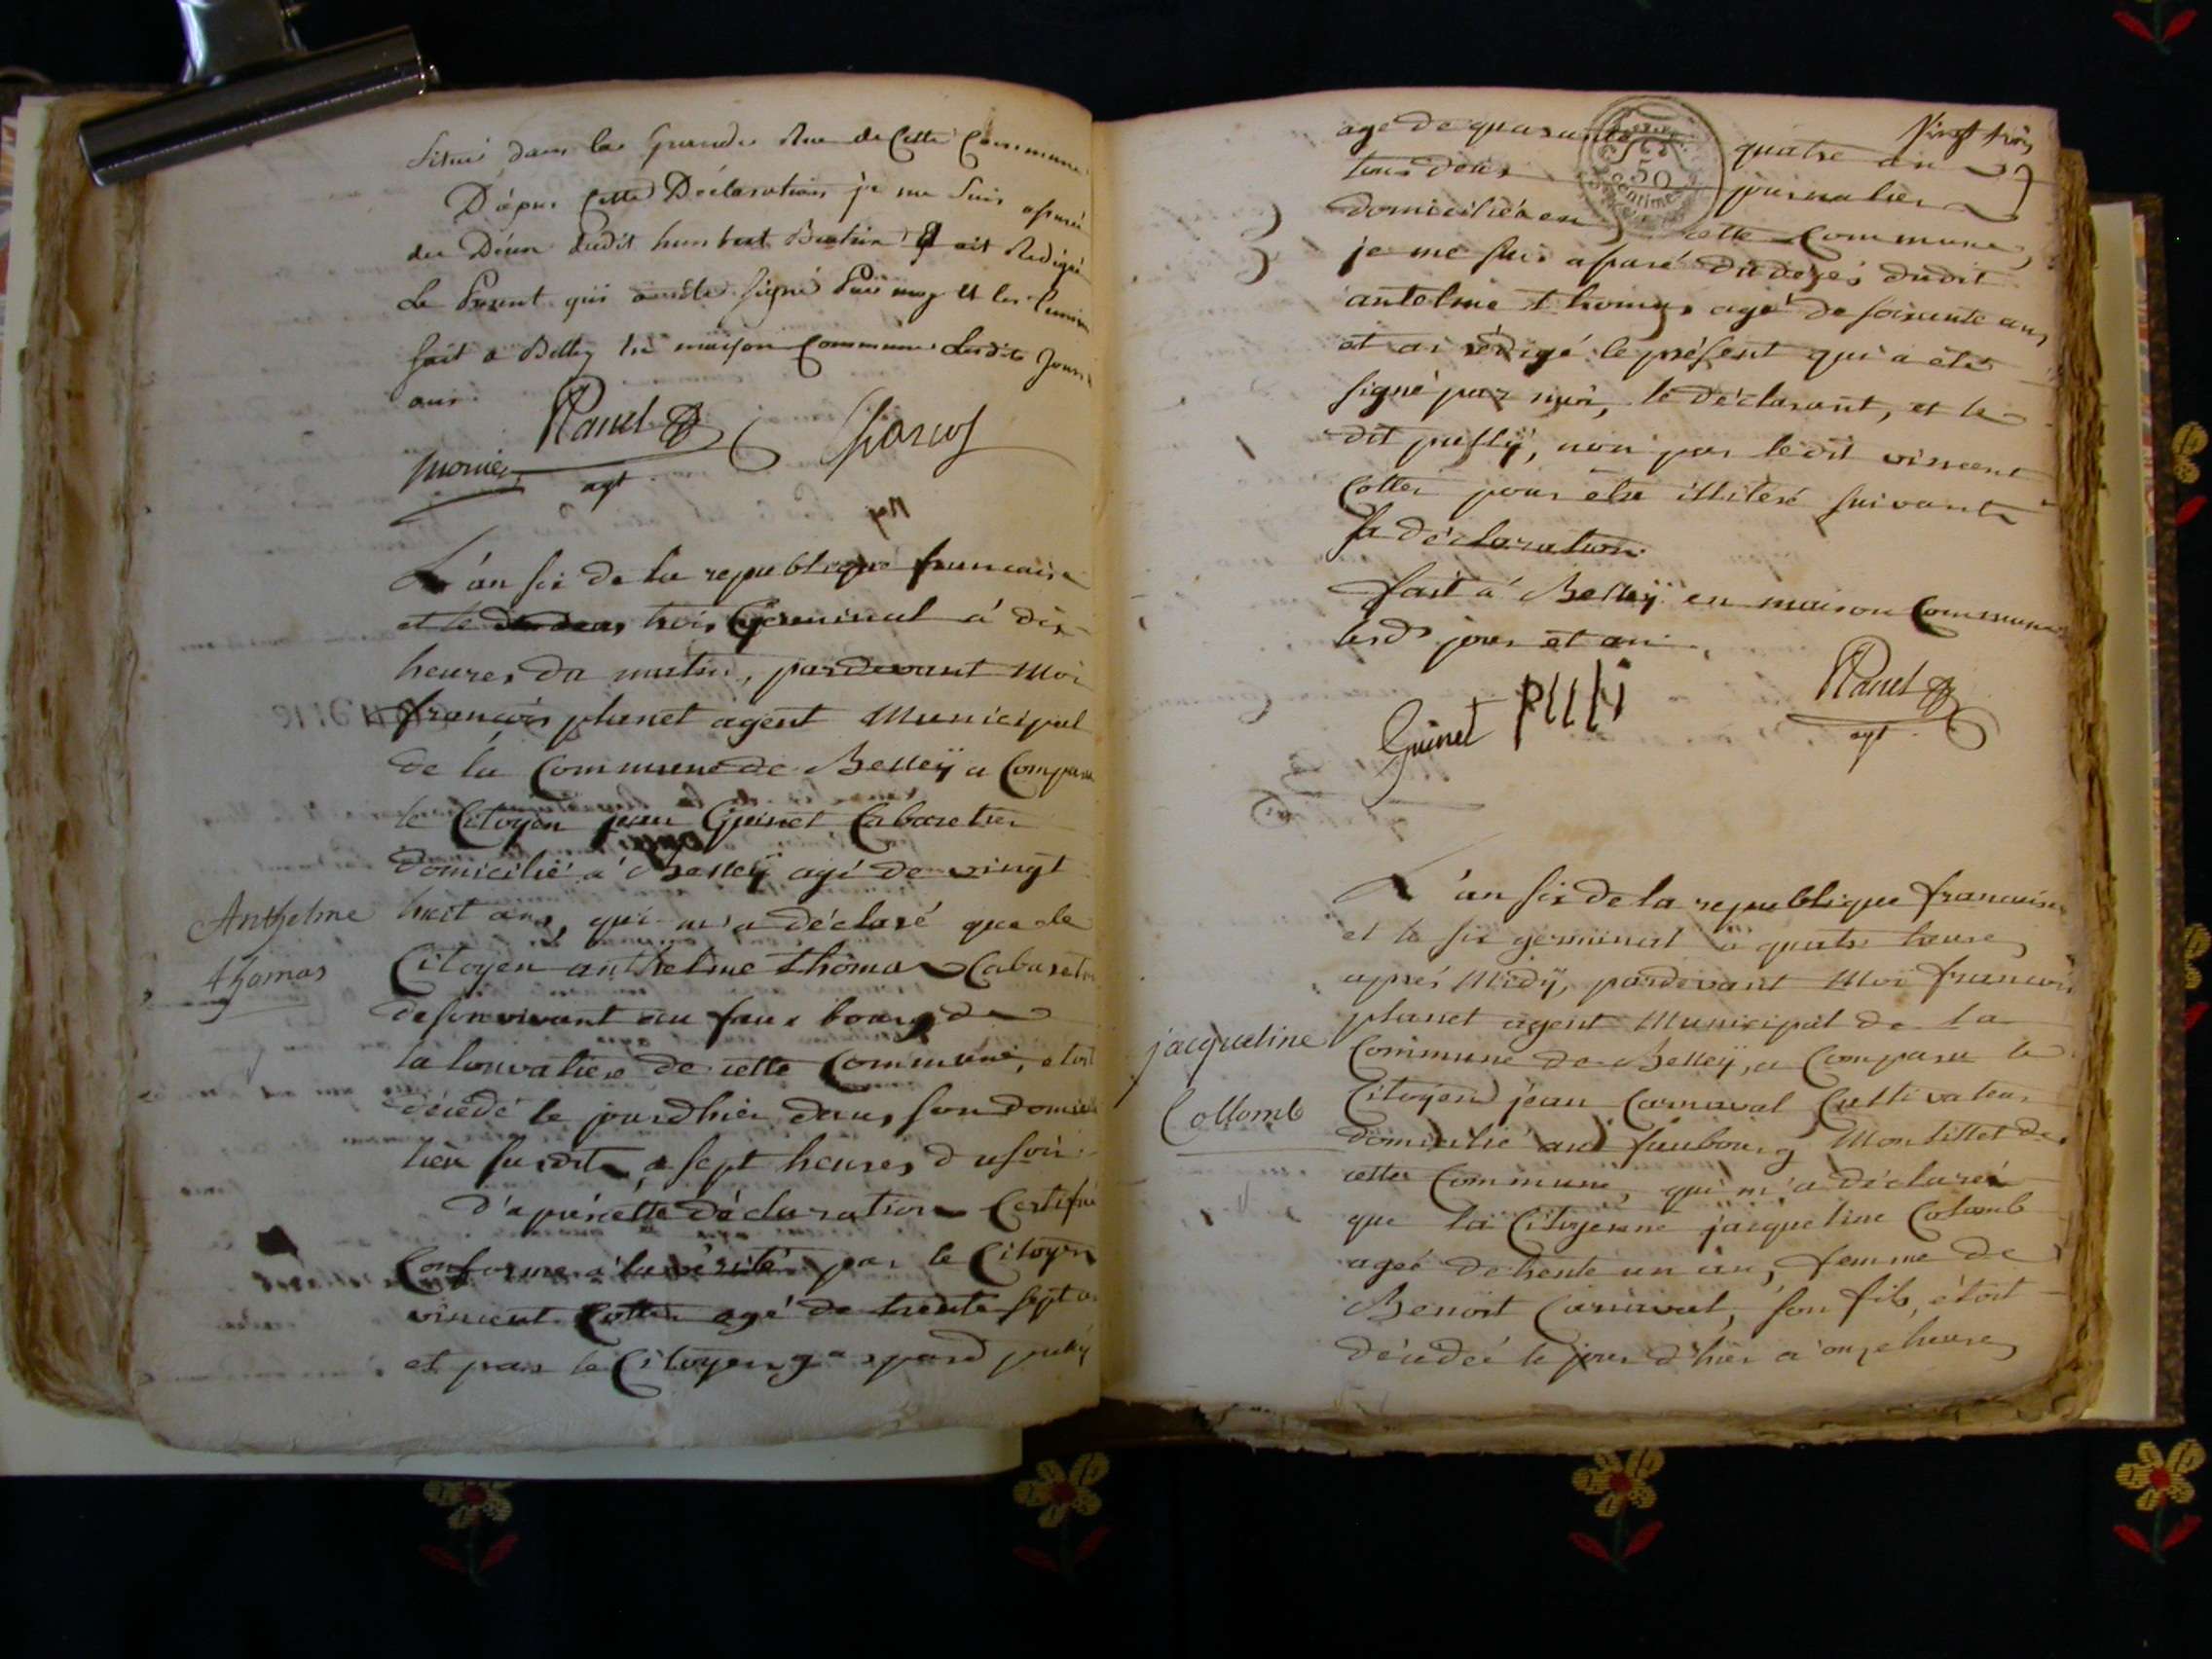 Situé dans la Grande Rue de Cette Commune
D'apres Cette Déclaration je me Suis assuré
du Décés dudit humbert Berthin & ait Redigé
Le Present qui a esté signé Par moy et les temoin
fait a Belley en maison Commune Lesdits Jours
ans.
Planet
agt
L'an six de la republique francaise
et le trois Germinal à dix
heures du matin, pardevant Moi
françois planet agent Municipal
de la Commune de Belleÿ a Comparu
le Citoyen jean Guinet Cabaretier
domicilié à Belleÿ agé de vingt
huit ans, qui m'a déclaré que le
Anthelme
Thomas
Citoyen anthelme thomas Cabaretier
de son vivant au faux bourg de
la louvatiere de cette Commune, etoit
décédé le jourdhier dans son domicile
lieu susdit, a sept heures du soir.
d'aprés cette déclaration Certifié
Conforme a la vérité par le Citoyen
vincent Cotten agé de trente sept ans
et par le Citoyen gaspard pully
Vingt trois
age de quarante quatre an
tous deux journalier
domiciliés en cette Commune,
je me suis assuré du decés dudit
antelme thomas agé de soixante ans
et ai rédigé le présent qui a été
signé par moi, le déclarant, et le
dit pullÿ, non par ledit vincent
Cotten pour etre illiteré suivant
sa déclaration.
fait à Belleÿ en maison Commune
lesd. jour et an.
Guinet PULLI Planet
agt
L'an six de la republique francaise
et le six germinal à quatre heures
aprés Midÿ, pardevant Moi francois
planet agent Municipal de la
jacqueline
Collomb
Commune de Belleÿ, a Comparu le
Citoyen jean Carnaval Cultivateur
domicilié au faubourg Montillet de
cette Commune, qui m'a déclaré
que la Citoyenne jacqueline Colomb
ageé de trente un an, femme de
Benoit Carnaval, son fils, étoit
décédeé le jour d'hier a onze heures